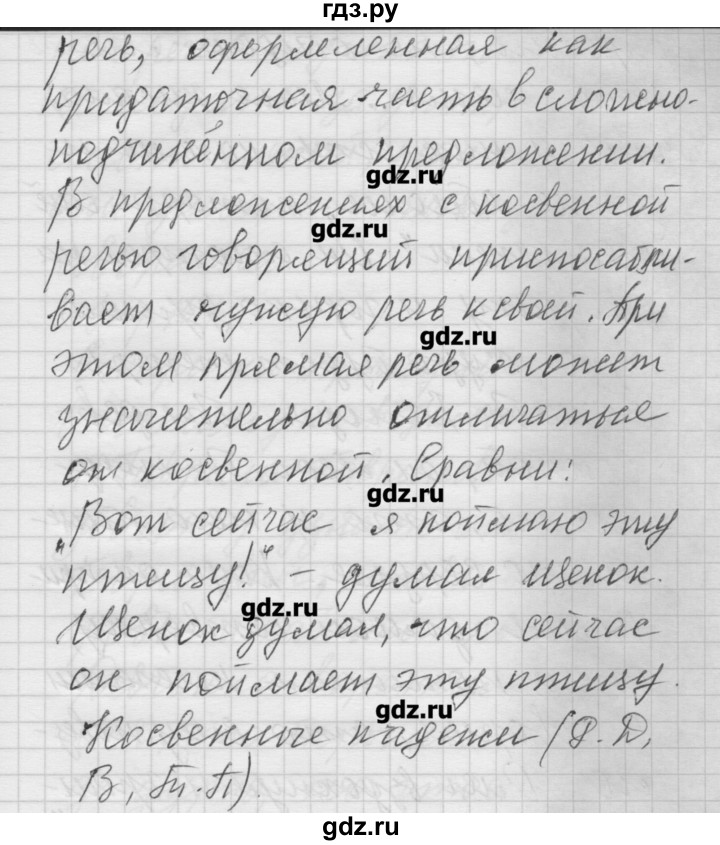 гдз.ру
речь, оформленная как
придаточная часть в сложно-
подчинённом предложении.
gdz.ru
В предложениях с косвенной
gdz.ru
речью говорящий приспосабли-
вает чужую речь к своей. При
gdz.ru
этом прямая речь может
значительно отличаться
от косвенной. Сравни:
gdz.ru
"Вот сейчас я поймаю эту
птицу!" – думал Щенок.
gdz.ru
Щенок думал, что сейчас
он поймает эту птицу.
gdz.ru
Косвенные падежи (Р. Д,
В, Тп. П).
gdz.ru